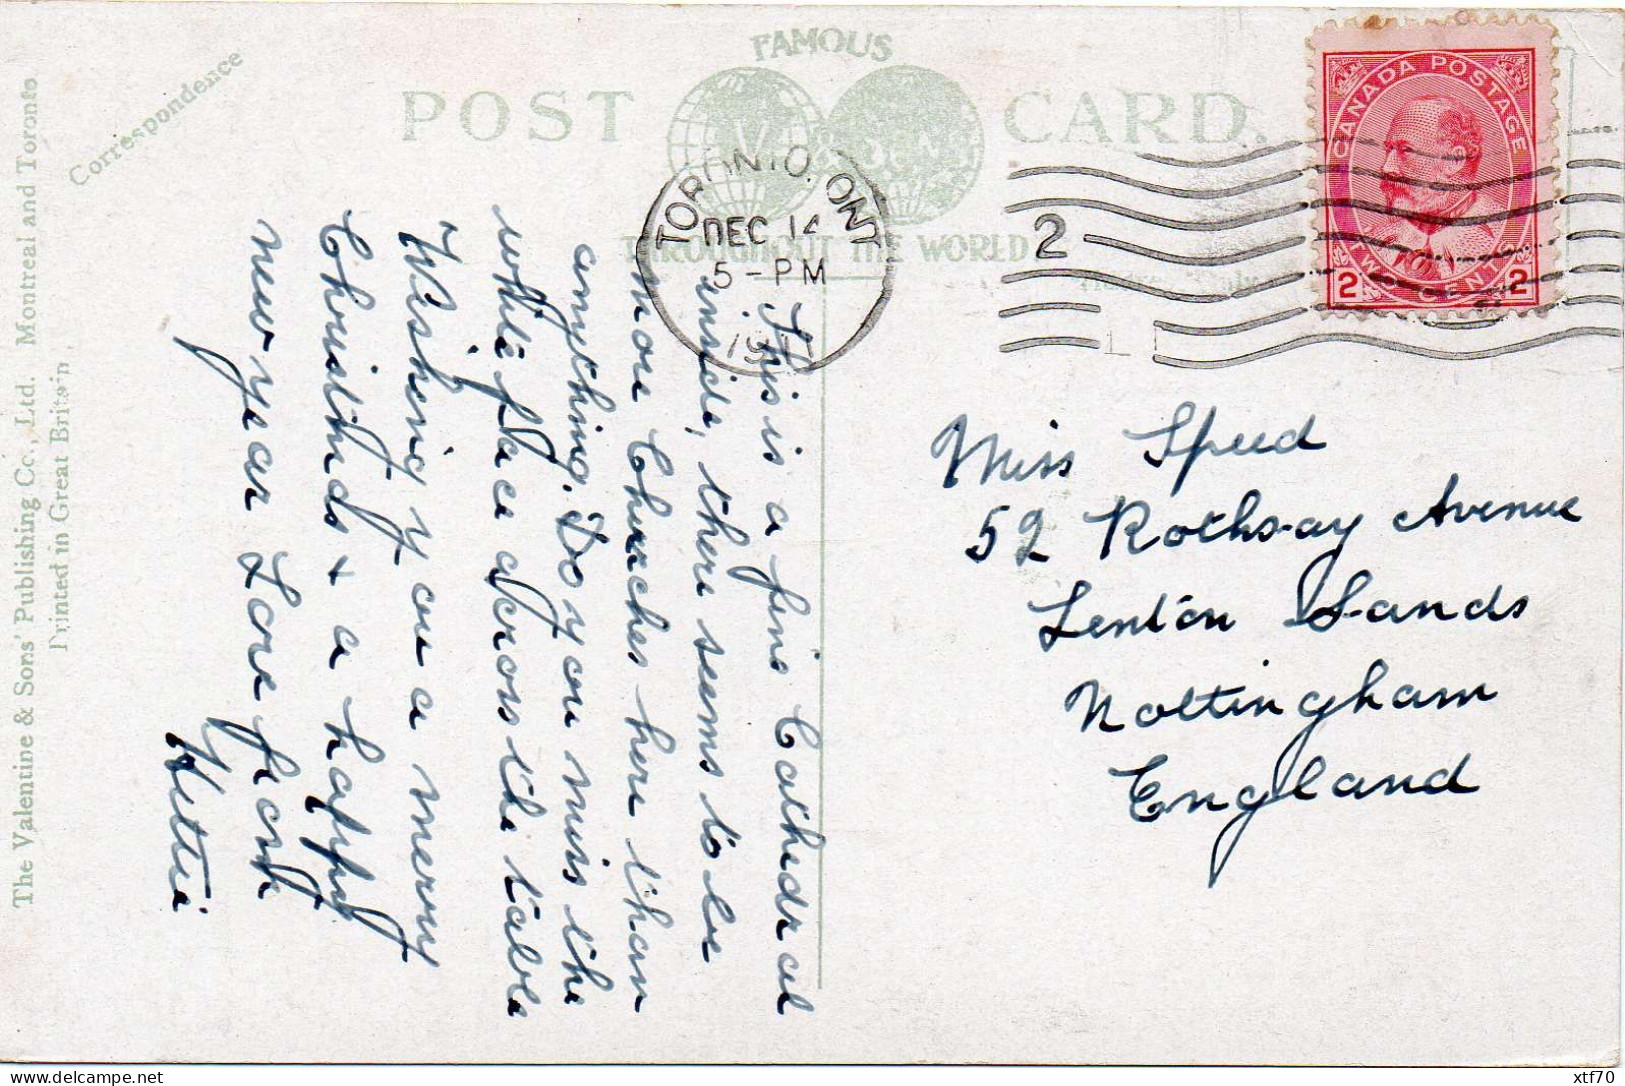 FAMOUS
POST CARD.
THROUGHOUT THE WORLD
Correspondence
The Valentine & Sons' Publishing Co., Ltd. Montreal and Toronto
Printed in Great Britain
TORONTO. ONT
DEC 14
5-PM
2
CANADA POSTAGE
2 TWO CENTS 2
This is a fine Cathedral
inside, there seems to be
more Churches here than
anything. Do you miss the
white face across the table
Wishing you a merry
Christmas + a happy
new year Love from
Hettie
Miss Speed
52 Rothsay Avenue
Lenton Sands
Nottingham
England
xtf70